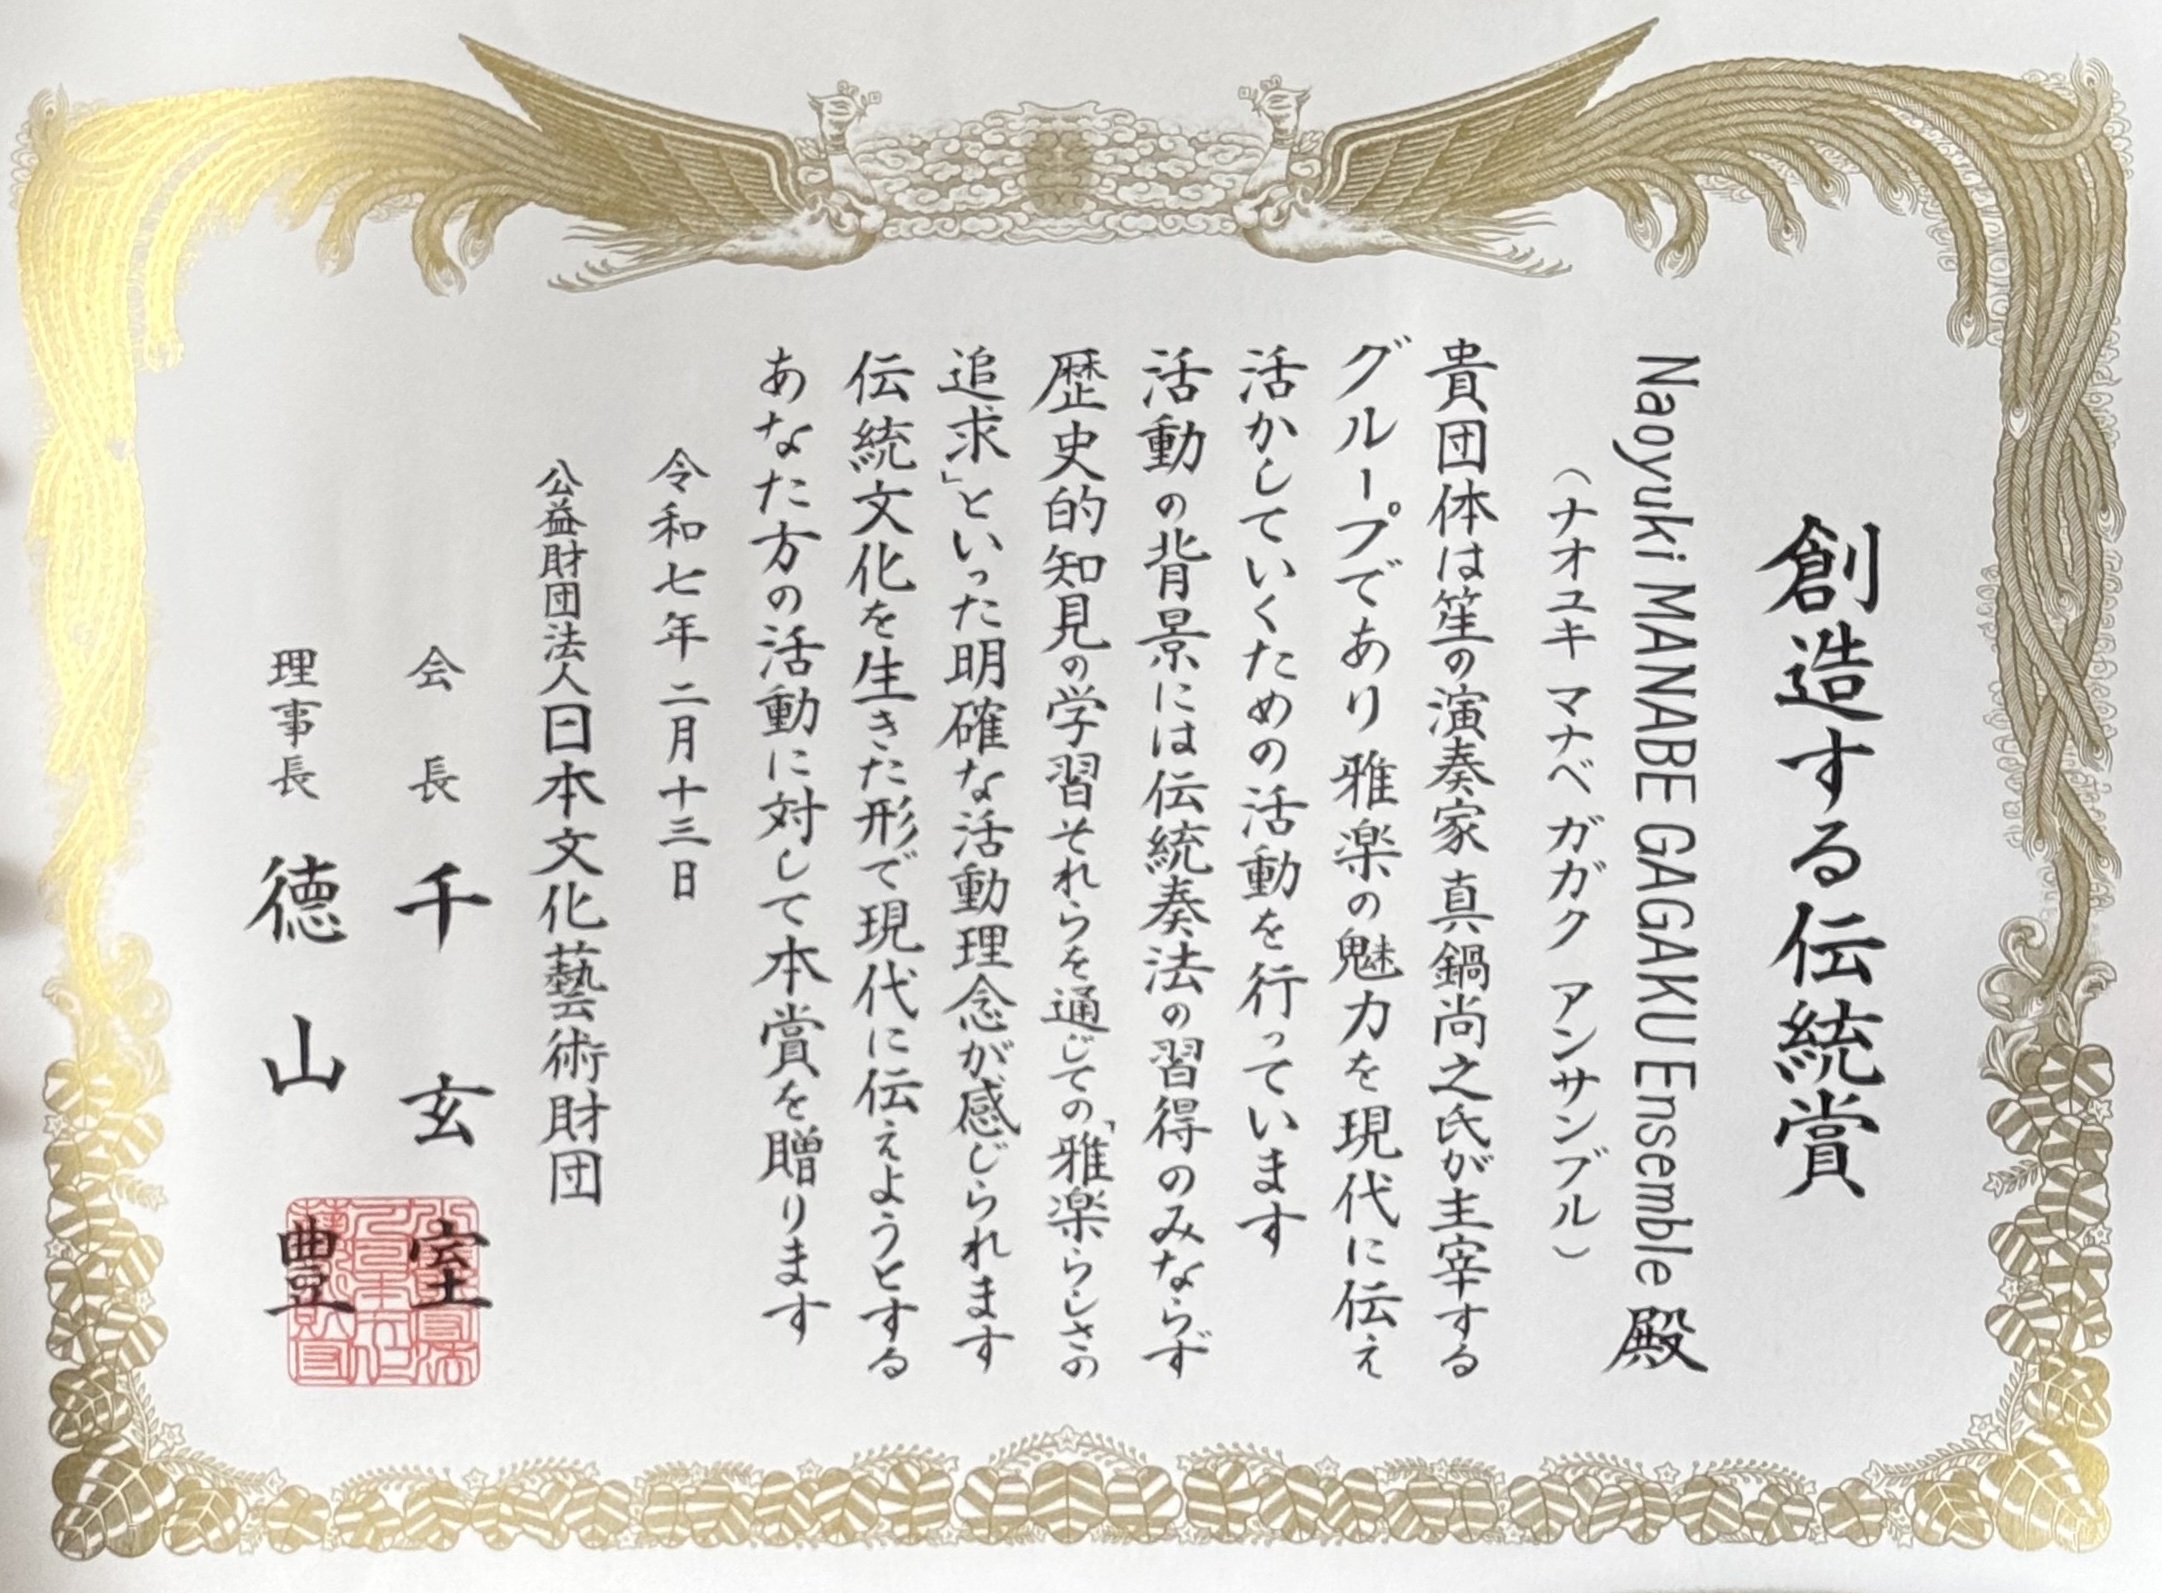 創造する伝統賞
Naoyuki MANABE GAGAKU Ensemble 殿
（ナオユキ マナベ ガガク アンサンブル）
貴団体は笙の演奏家 真鍋尚之氏が主宰する
グループであり 雅楽の魅力を現代に伝え
活かしていくための活動を行っています
活動の背景には伝統奏法の習得のみならず
歴史的知見の学習それらを通じての「雅楽らしさの
追求」といった明確な活動理念が感じられます
伝統文化を生きた形で現代に伝えようとする
あなた方の活動に対して本賞を贈ります
令和七年二月十三日
公益財団法人日本文化藝術財団
会長 千 玄 室
理事長 徳山 豊